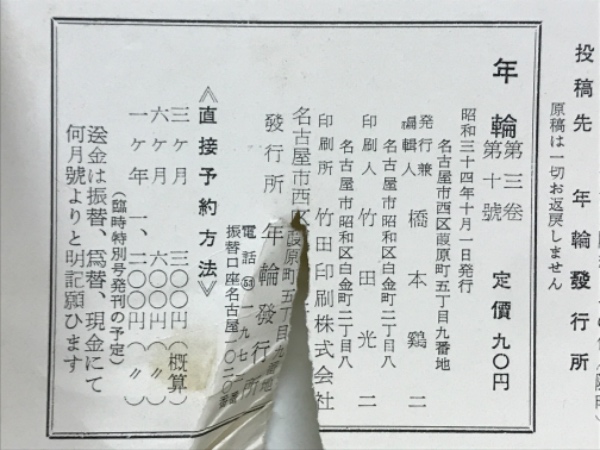 投稿先　年輪發行所
原稿は一切お返戻しません
年輪
第三卷
第十號
定價九〇円
昭和三十四年十月一日発行
名古屋市西区葭原町五丁目九番地
発行兼
編輯人
橋本鷄二
名古屋市昭和区白金町二丁目八
印刷人　竹田光二
名古屋市昭和区白金町二丁目八
印刷所　竹田印刷株式会社
名古屋市西区葭原町五丁目九番地
發行所　年輪發行所
電話
一九七
振替口座名古屋一〇二〇
番
《直接予約方法》
三ヶ月　三〇〇円（概算）
六ヶ月　六〇〇円（〃）
一ヶ年　一、二〇〇円（〃）
（臨時特別号発刊の予定）
送金は振替、爲替、現金にて
何月號よりと明記願ひます